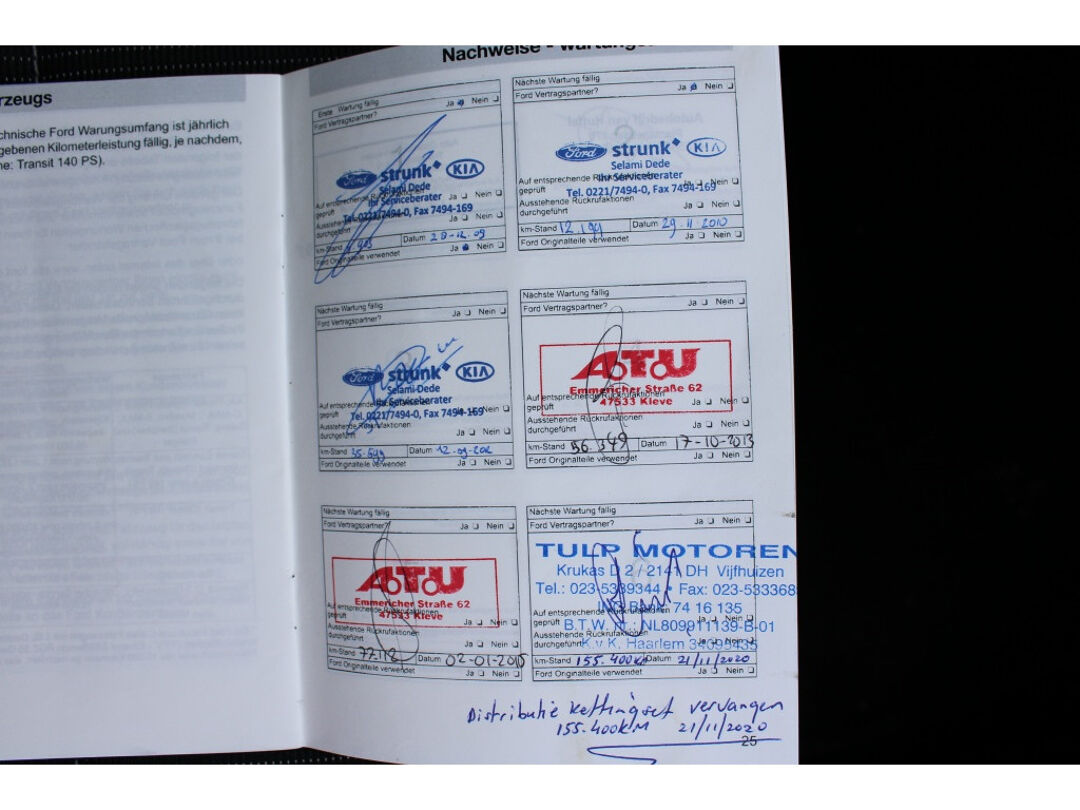 rzeugs
chnische Ford Warungsumfang ist jährlich
gebenen Kilometerleistung fällig, je nachdem,
ne: Transit 140 PS).
Nachweise - Wartungs
Erste Wartung fällig
Ford Vertragspartner? Ja Nein
Ford strunk KIA
Selami Dede
Ihr Serviceberater
Auf entsprechende Rückrufaktionen
geprüft Ja Nein
Tel. 0221/7494-0, Fax 7494-169
Ausstehende Rückrufaktionen
durchgeführt Ja Nein
km-Stand Datum 28-12.09
Ford Originalteile verwendet Ja Nein
Nächste Wartung fällig
Ford Vertragspartner? Ja Nein
Ford strunk KIA
Selami Dede
Ihr Serviceberater
Auf entsprechende Rückrufaktionen
geprüft Ja Nein
Tel. 0221/7494-0, Fax 7494-169
Ausstehende Rückrufaktionen
durchgeführt Ja Nein
km-Stand Datum 29.11.2010
Ford Originalteile verwendet Ja Nein
Nächste Wartung fällig
Ford Vertragspartner? Ja Nein
Ford strunk KIA
Selami Dede
Ihr Serviceberater
Auf entsprechende Rückrufaktionen
geprüft Ja Nein
Tel. 0221/7494-0, Fax 7494-169
Ausstehende Rückrufaktionen
durchgeführt Ja Nein
km-Stand Datum
Ford Originalteile verwendet Ja Nein
Nächste Wartung fällig
Ford Vertragspartner? Ja Nein
ATU
Emmericher Straße 62
47533 Kleve
Auf entsprechende Rückrufaktionen
geprüft Ja Nein
Ausstehende Rückrufaktionen
durchgeführt Ja Nein
km-Stand 56.349 Datum 17-10-2013
Ford Originalteile verwendet Ja Nein
Nächste Wartung fällig
Ford Vertragspartner? Ja Nein
ATU
Emmericher Straße 62
47533 Kleve
Auf entsprechende Rückrufaktionen
geprüft Ja Nein
Ausstehende Rückrufaktionen
durchgeführt Ja Nein
km-Stand 77.112 Datum 02-01-2015
Ford Originalteile verwendet Ja Nein
Nächste Wartung fällig
Ford Vertragspartner? Ja Nein
TULP MOTOREN
Krukas D 2 / 2141 DH Vijfhuizen
Tel.: 023-5339344 • Fax: 023-533368
74 16 135
Auf entsprechende Rückrufaktionen
geprüft Ja Nein
B.T.W. nr.: NL809911139-B-01
Ausstehende Rückrufaktionen
durchgeführt Ja Nein
K.v.K. Haarlem 34099435
km-Stand 155.400KM Datum 21/11/2020
Ford Originalteile verwendet Ja Nein
Distributie kettingset vervangen
155.400KM 21/11/2020
25